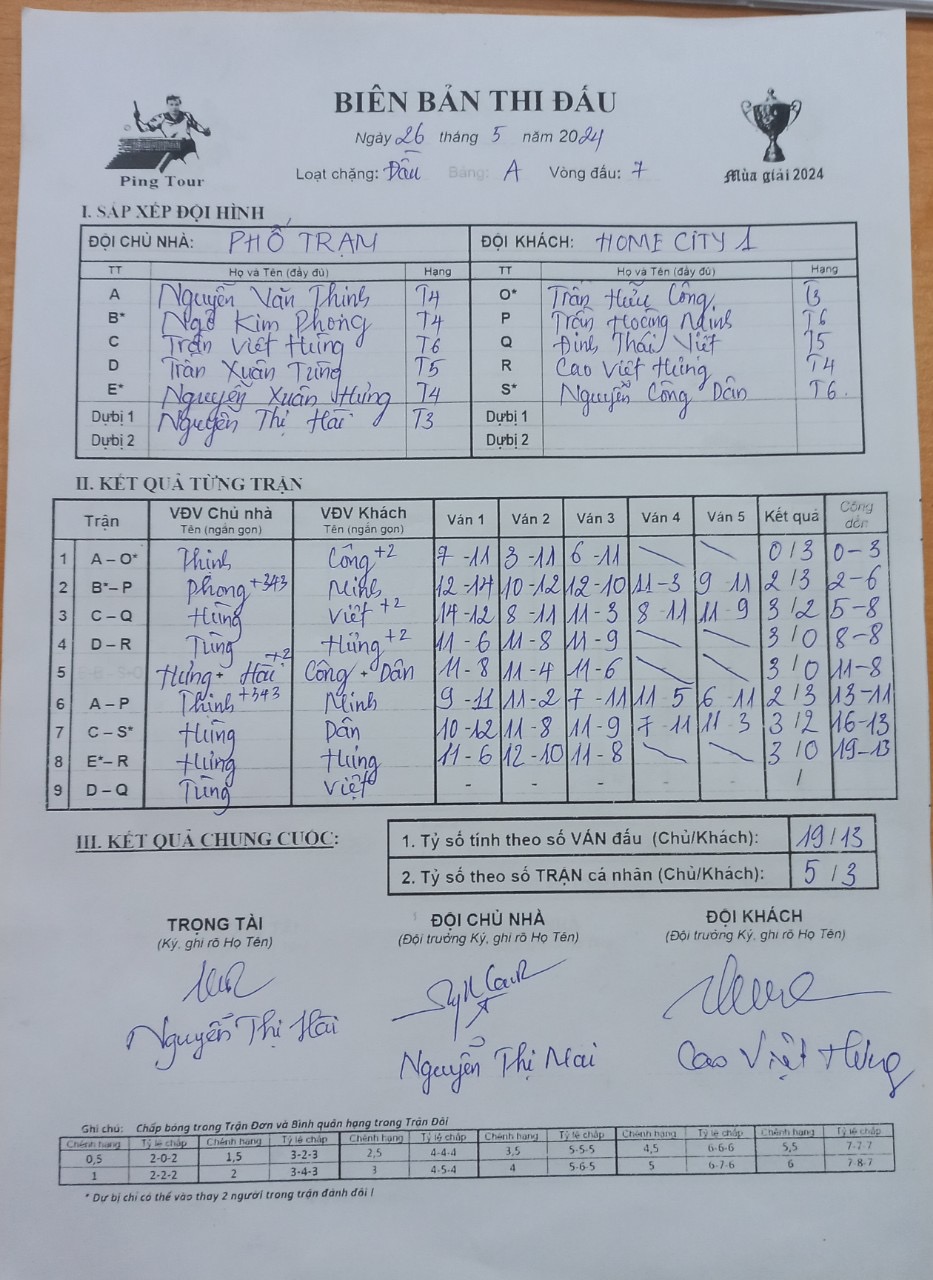 BIÊN BẢN THI ĐẤU
Ngày 26 tháng 5 năm 2024
Ping Tour
Loạt chặng: Đầu Bảng: A Vòng đấu: 7
Mùa giải 2024
I. SẮP XẾP ĐỘI HÌNH
ĐỘI CHỦ NHÀ: PHỐ TRẠM ĐỘI KHÁCH: HOME CITY 1
TT Họ và Tên (đầy đủ) Hạng TT Họ và Tên (đầy đủ) Hạng
A Nguyễn Văn Thinh T4 O* Trần Hữu Công T3
B* Ngô Kim Phong T4 P Trần Hoàng Minh T6
C Trần Việt Hùng T6 Q Đinh Thái Việt T5
D Trần Xuân Tùng T5 R Cao Việt Hưng T4
E* Nguyễn Xuân Hưng T4 S* Nguyễn Công Dân T6
Dự bị 1 Nguyễn Thị Hải T3 Dự bị 1
Dự bị 2 Dự bị 2
II. KẾT QUẢ TỪNG TRẬN
Trận VĐV Chủ nhà VĐV Khách Ván 1 Ván 2 Ván 3 Ván 4 Ván 5 Kết quả Cộng dồn
Tên (ngắn gọn) Tên (ngắn gọn)
1 A – O* Thinh Công +2 7 - 11 3 - 11 6 - 11 0 / 3 0 - 3
2 B* – P Phong +343 Minh 12 - 14 10 - 12 12 - 10 11 - 3 9 11 2 / 3 2 - 6
3 C – Q Hùng Việt +2 14 - 12 8 - 11 11 - 3 8 - 11 11 - 9 3 / 2 5 - 8
4 D – R Tùng Hưng +2 11 - 6 11 - 8 11 - 9 3 / 0 8 - 8
5 Hưng + Hải +2 Công + Dân 11 - 8 11 - 4 11 - 6 3 / 0 11 - 8
6 A – P Thinh +343 Minh 9 - 11 11 - 2 7 - 11 11 5 6 - 11 2 / 3 13 - 11
7 C – S* Hùng Dân 10 - 12 11 - 8 11 - 9 7 - 11 11 - 3 3 / 2 16 - 13
8 E* – R Hưng Hưng 11 - 6 12 - 10 11 - 8 3 / 0 19 - 13
9 D – Q Tùng Việt - - - - - /
III. KẾT QUẢ CHUNG CUỘC:
1. Tỷ số tính theo số VÁN đấu (Chủ/Khách): 19 / 13
2. Tỷ số theo số TRẬN cá nhân (Chủ/Khách): 5 / 3
TRỌNG TÀI ĐỘI CHỦ NHÀ ĐỘI KHÁCH
(Ký, ghi rõ Họ Tên) (Đội trưởng Ký, ghi rõ Họ Tên) (Đội trưởng Ký, ghi rõ Họ Tên)
Nguyễn Thị Hải Nguyễn Thị Mai Cao Việt Hưng
Ghi chú: Chấp bóng trong Trận Đơn và Bình quân hạng trong Trận Đôi
Chênh hạng Tỷ lệ chấp Chênh hạng Tỷ lệ chấp Chênh hạng Tỷ lệ chấp Chênh hạng Tỷ lệ chấp Chênh hạng Tỷ lệ chấp Chênh hạng Tỷ lệ chấp
0,5 2-0-2 1,5 3-2-3 2,5 4-4-4 3,5 5-5-5 4,5 6-6-6 5,5 7-7-7
1 2-2-2 2 3-4-3 3 4-5-4 4 5-6-5 5 6-7-6 6 7-8-7
* Dự bị chỉ có thể vào thay 2 người trong trận đánh đôi !